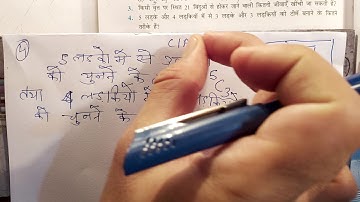 3. किसी वृत्त पर स्थित 21 बिंदुओं से होकर जाने वाली कितनी जीवाएँ खींची जा सकती हैं?
4. 5 लड़के और 4 लड़कियों में से 3 लड़के और 3 लड़कियों की टीमें बनाने के कितने तरीके हैं?
4
5 लड़कों में से
को चुनने के 5C3
तथा 4 लड़कियों
को चुनने के